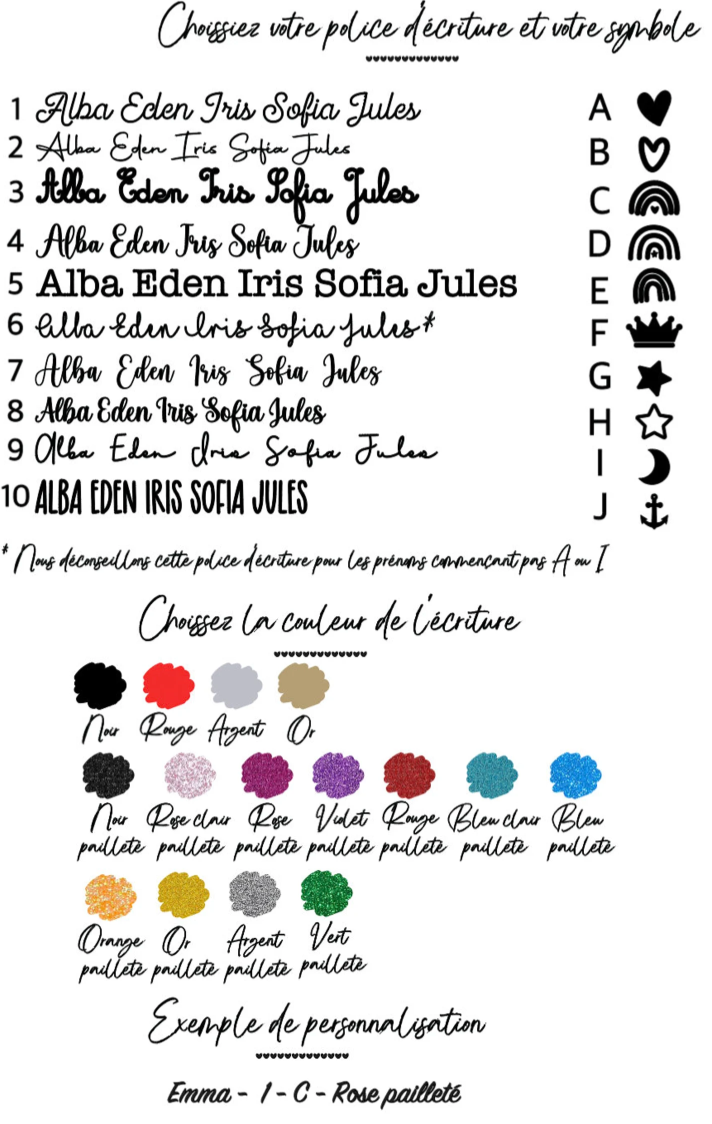 Choissiez votre police d'écriture et votre symbole
1 Alba Eden Iris Sofia Jules
A
2 Alba Eden Iris Sofia Jules
B
3 Alba Eden Iris Sofia Jules
C
4 Alba Eden Iris Sofia Jules
D
5 Alba Eden Iris Sofia Jules
E
6 Alba Eden Iris Sofia Jules*
F
7 Alba Eden Iris Sofia Jules
G
8 Alba Eden Iris Sofia Jules
H
9 Alba Eden Iris Sofia Jules
I
10 ALBA EDEN IRIS SOFIA JULES
J
* Nous déconseillons cette police d'écriture pour les prénoms commencant pas A ou I
Choissez la couleur de l'écriture
Noir Rouge Argent Or
Noir Rose clair Rose Violet Rouge Bleu clair Bleu
pailleté pailleté pailleté pailleté pailleté pailleté pailleté
Orange Or Argent Vert
pailleté pailleté pailleté pailleté
Exemple de personnalisation
Emma - 1 - C - Rose pailleté